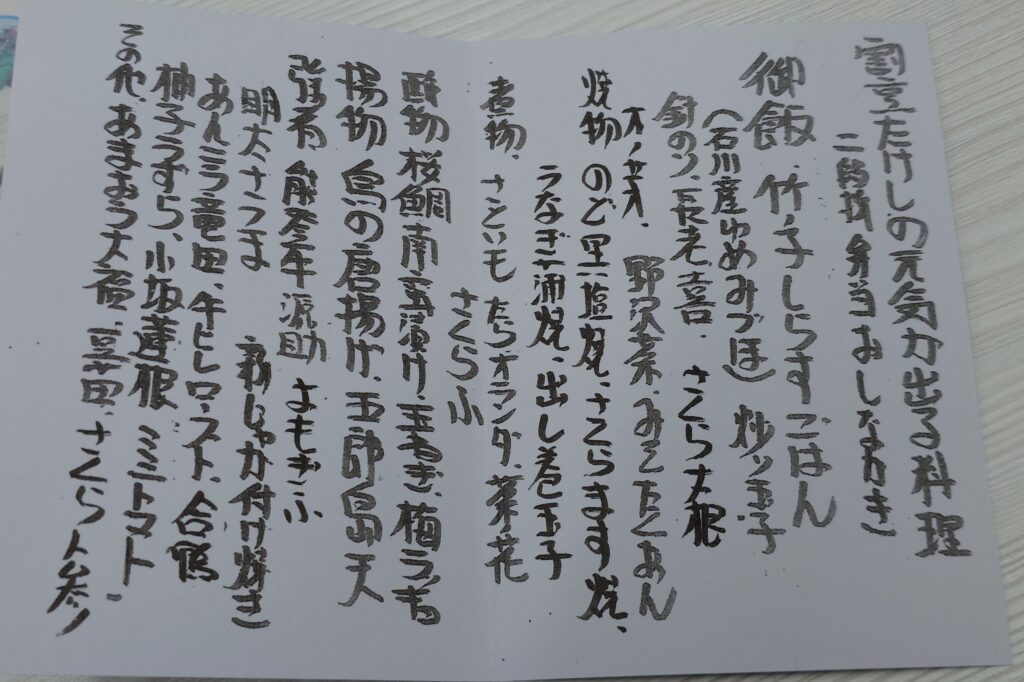 割烹たけしの元気が出る料理
二段折弁当おしながき
御飯、竹ノ子しらすごはん
(石川産ゆめみづほ) 炒り玉子
針のり、長老喜 さくら大根
野沢菜、みそたくあん
焼物 のど黒塩焼、さくらます焼、
うなぎ蒲焼、出し巻玉子
煮物、さといも たらオランダ、菜花
さくらふ
酢物 桜鯛南蛮漬け、玉ねぎ、梅らっきょ
揚物 鳥の唐揚げ、五郎島天
強肴 能登牛 源助 よもぎふ
明太さつま 新じゃが付け焼き
あんこう竜田、牛ヒレロースト、合鴨
柚子うずら、小坂蓮根 ミニトマト
その他、あまおう大福、豆苗、さくら人参